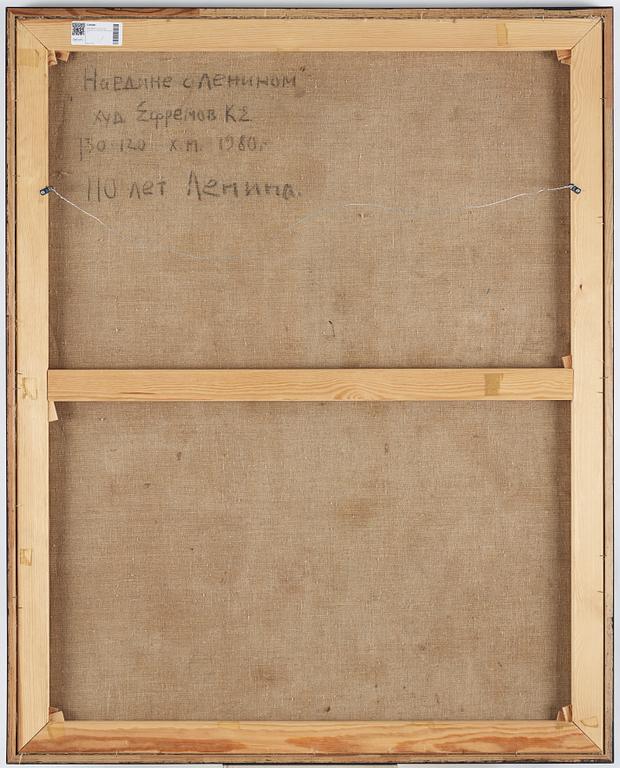 "Наедине с Лениным"
худ Ефремов К.Е
130-120 х.м. 1980г
110 лет Ленина.